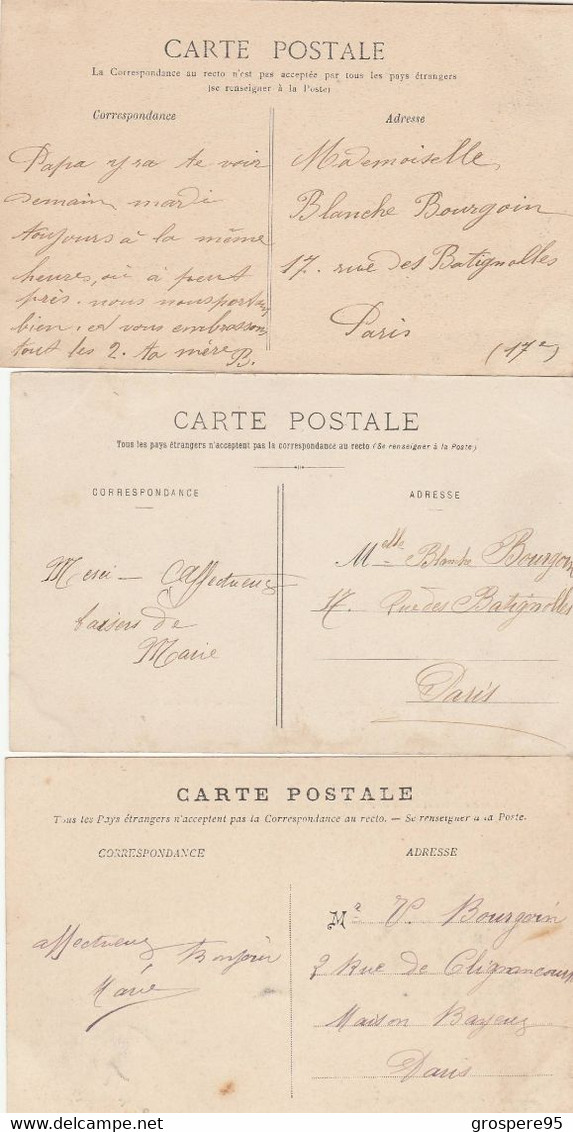 CARTE POSTALE
La Correspondance au recto n'est pas acceptée par tous les pays étrangers
(se renseigner à la Poste)
Correspondance
Papa yra te voir
demain mardi
toujours à la même
heures, où à peut
près. nous nous portons
bien. et vous embrassons
tout les 2. ta mère B.
Adresse
Mademoiselle
Blanche Bourgoin
17. rue des Batignolles
Paris
(17e)
CARTE POSTALE
Tous les pays étrangers n'acceptent pas la correspondance au recto (Se renseigner à la Poste)
CORRESPONDANCE
Merci — Affectueux
baisers de
Marie
ADRESSE
Melle Blanche Bourgoin
17. Rue des Batignolles
Paris
CARTE POSTALE
Tous les Pays étrangers n'acceptent pas la Correspondance au recto. — Se renseigner à la Poste.
CORRESPONDANCE
affectueux Bonjour
Marie
ADRESSE
Mr V. Bourgoin
2 Rue de Clignancourt
Maison Bayeux
Paris
grospere95